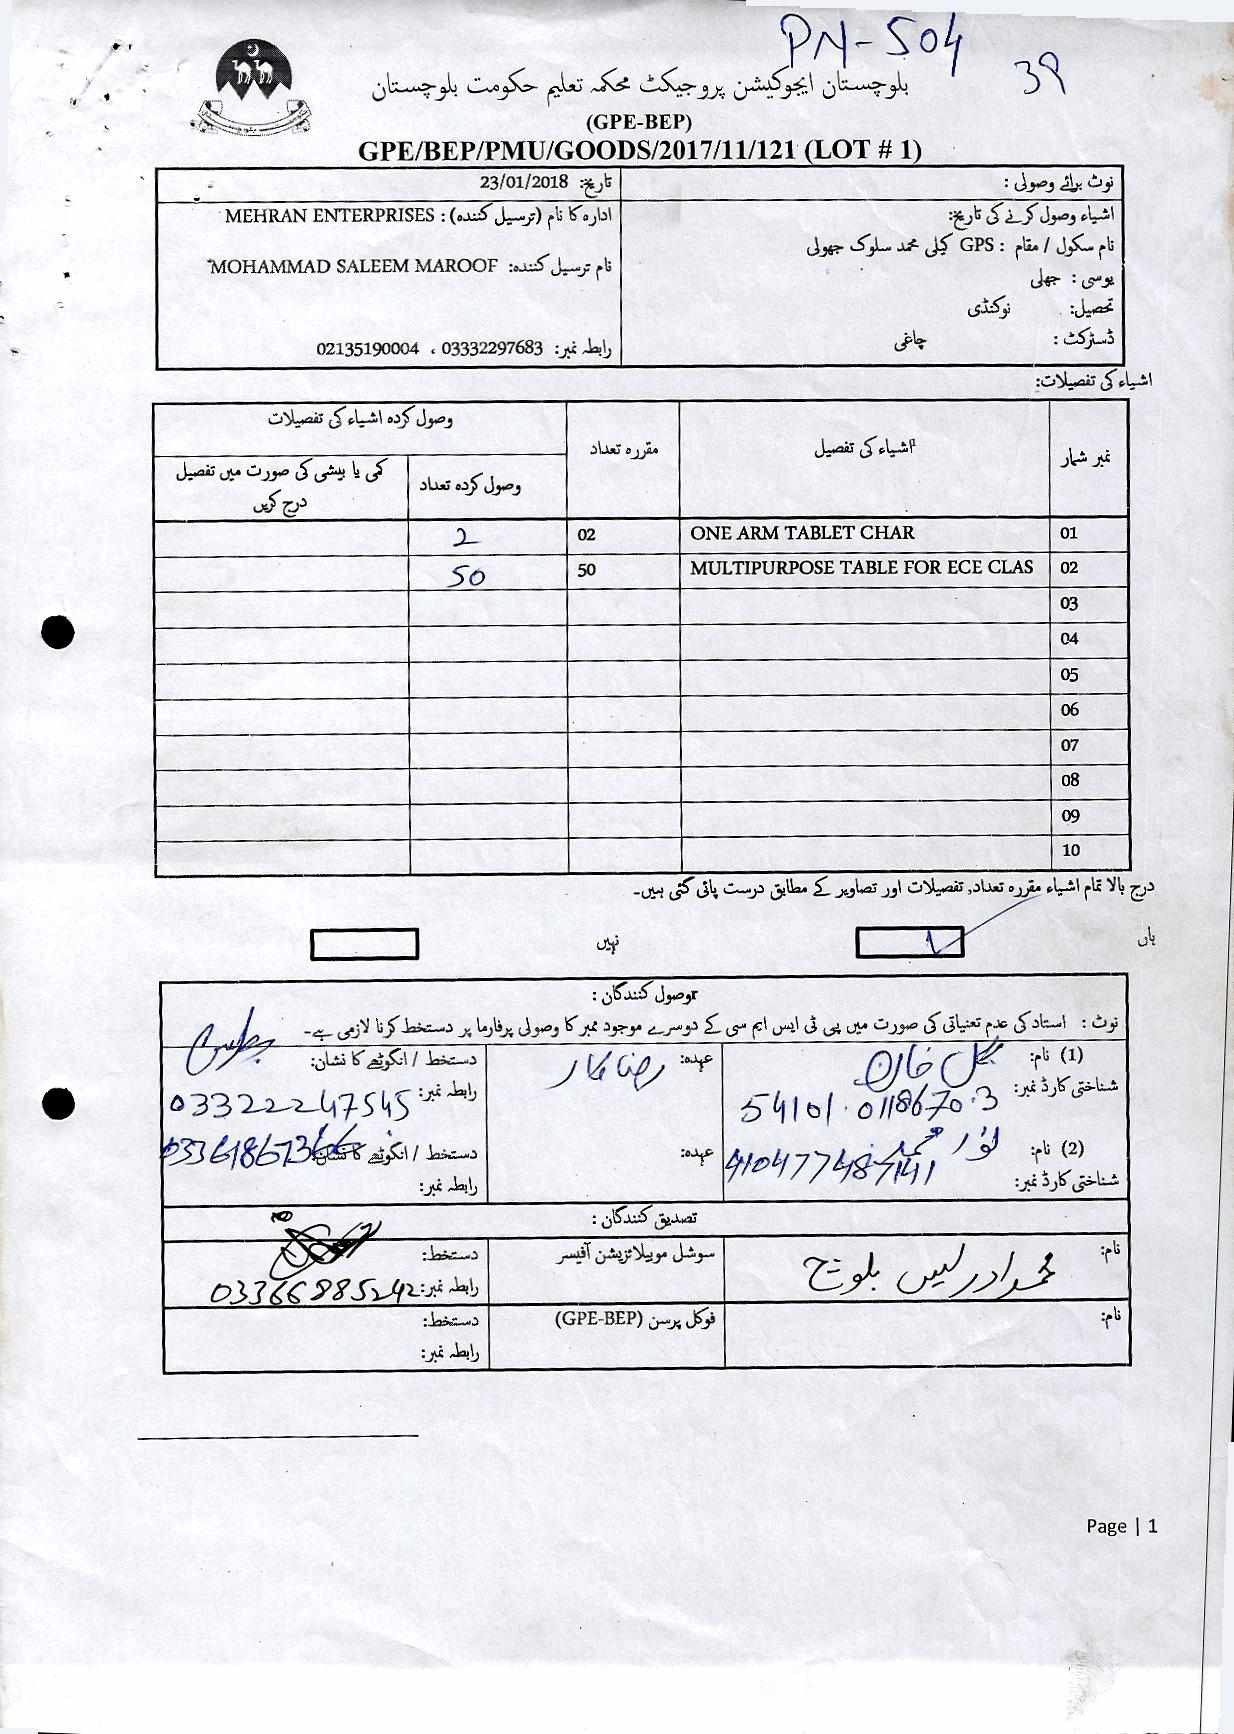 PN-504
39
بلوچستان ایجوکیشن پروجیکٹ محکمہ تعلیم حکومت بلوچستان
(GPE-BEP)
GPE/BEP/PMU/GOODS/2017/11/121 (LOT # 1)
نوٹ برائے وصولی :
تاریخ: 23/01/2018
اشیاء وصول کرنے کی تاریخ:
ادارہ کا نام (ترسیل کنندہ) : MEHRAN ENTERPRISES
نام سکول / مقام : GPS کیلی محمد سلوک جھولی
نام ترسیل کنندہ: MOHAMMAD SALEEM MAROOF
یوسی : جھلی
تحصیل: نوکنڈی
ڈسٹرکٹ : چاغی
رابطہ نمبر: 03332297683 ، 02135190004
اشیاء کی تفصیلات:
نمبر شمار اشیاء کی تفصیل مقررہ تعداد وصول کردہ اشیاء کی تفصیلات
وصول کردہ تعداد کمی یا بیشی کی صورت میں تفصیل درج کریں
01 ONE ARM TABLET CHAR 02 2
02 MULTIPURPOSE TABLE FOR ECE CLAS 50 50
03
04
05
06
07
08
09
10
درج بالا تمام اشیاء مقررہ تعداد, تفصیلات اور تصاویر کے مطابق درست پائی گئی ہیں۔
ہاں نہیں
وصول کنندگان :
نوٹ : استاد کی عدم تعنیاتی کی صورت میں پی ٹی ایس ایم سی کے دوسرے موجود ممبر کا وصولی پرفارما پر دستخط کرنا لازمی ہے۔
(1) نام: گل خان عہدہ: رضا کار دستخط / انگوٹھے کا نشان:
شناختی کارڈ نمبر: 54101.0118670.3 رابطہ نمبر: 03322247545
(2) نام: نور محمد عہدہ: دستخط / انگوٹھے کا نشان:
شناختی کارڈ نمبر: رابطہ نمبر:
تصدیق کنندگان :
نام: محمد ادریس بلوچ سوشل موبیلائزیشن آفیسر دستخط:
رابطہ نمبر: 03366885242
نام: فوکل پرسن (GPE-BEP) دستخط:
رابطہ نمبر:
Page | 1